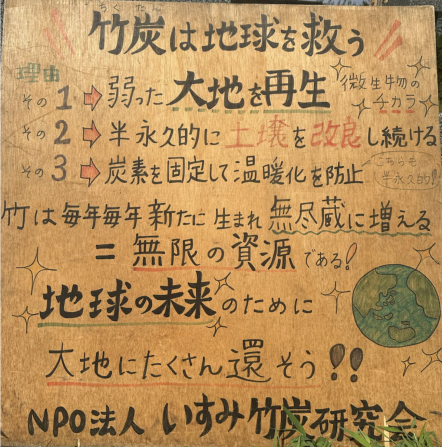 ちくたん
竹炭は地球を救う
理由
その1⇨弱った大地を再生
微生物の
チカラ
その2⇨半永久的に土壌を改良し続ける
その3⇨炭素を固定して温暖化を防止
こちらも
半永久的!
竹は毎年毎年新たに生まれ無尽蔵に増える
=無限の資源である!
地球の未来のために
大地にたくさん還そう!!
NPO法人いすみ竹炭研究会